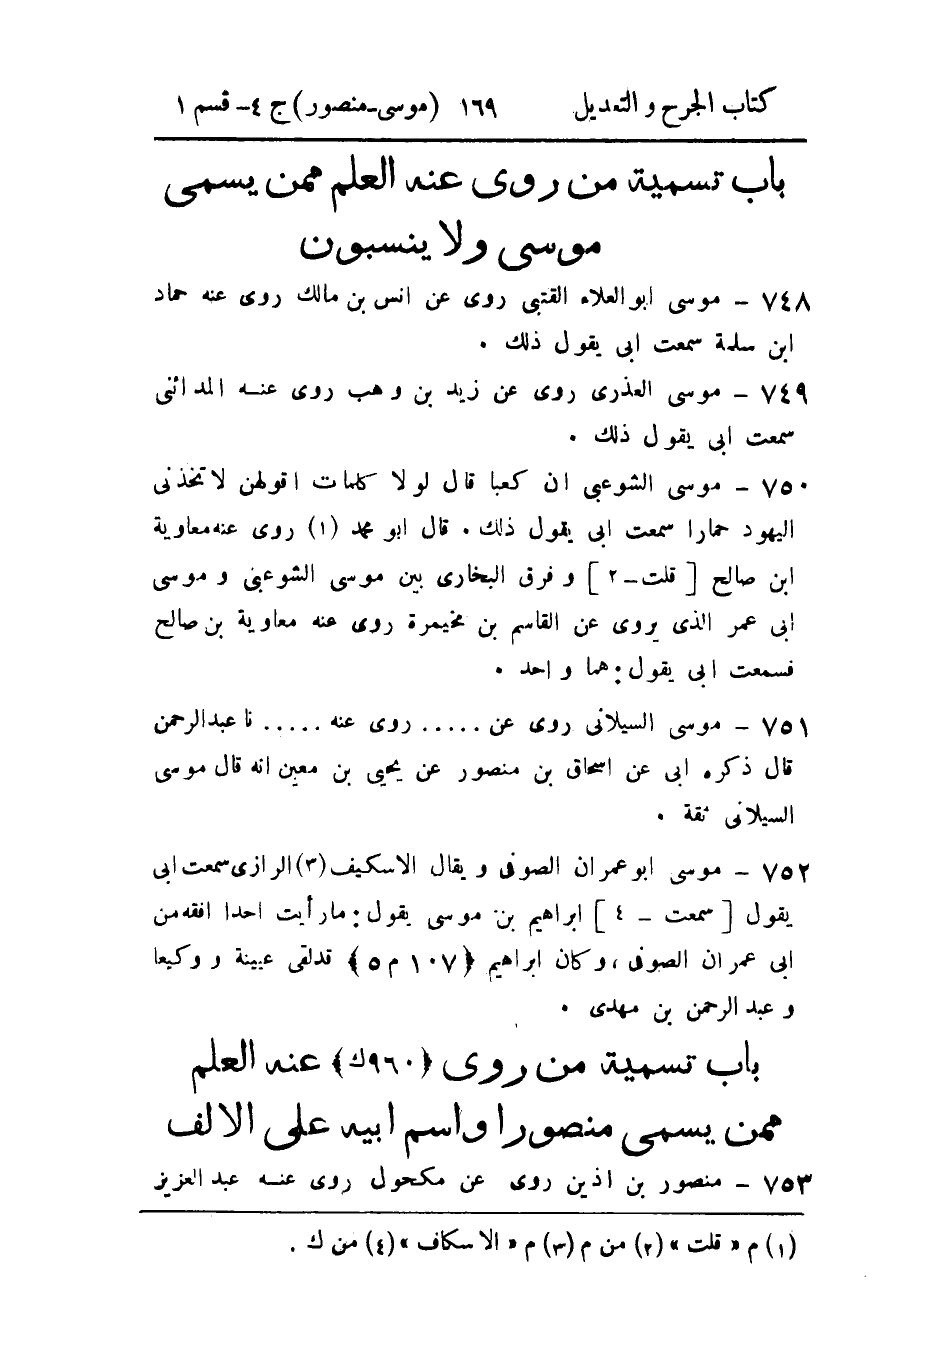 كتاب الجرح والتعديل ١٦٩ (موسى-منصور) ج ٤- قسم ١
باب تسمية من روى عنه العلم ممن يسمى
موسى ولا ينسبون
٧٤٨ - موسى ابو العلاء القتبى روى عن انس بن مالك روى عنه حماد
ابن سلمة سمعت ابى يقول ذلك ٠
٧٤٩ - موسى العذرى روى عن زيد بن وهب روى عنه المدائنى
سمعت ابى يقول ذلك ٠
٧٥٠ - موسى الشوعبى ان كعبا قال لولا كلمات اقولهن لاتخذنى
اليهود حمارا سمعت ابى يقول ذلك ٠ قال ابو محمد (١) روى عنه معاوية
ابن صالح [ قلت - ٢ ] وفرق البخارى بين موسى الشوعبى وموسى
ابى عمر الذى يروى عن القاسم بن مخيمرة روى عنه معاوية بن صالح
فسمعت ابى يقول: هما واحد ٠
٧٥١ - موسى السيلانى روى عن ..... روى عنه ..... نا عبدالرحمن
قال ذكره ابى عن اسحاق بن منصور عن يحيى بن معين انه قال موسى
السيلانى ثقة ٠
٧٥٢ - موسى ابو عمران الصوفى ويقال الاسكيف (٣) الرازى سمعت ابى
يقول [ سمعت - ٤ ] ابراهيم بن موسى يقول: مارأيت احدا افقه من
ابى عمران الصوفى ، وكان ابراهيم ﴿١٠٧ م ٥﴾ قدلقى عيينة ووكيعا
وعبد الرحمن بن مهدى ٠
باب تسمية من روى ﴿٩٦٠ك﴾ عنه العلم
ممن يسمى منصورا واسم ابيه على الالف
٧٥٣ - منصور بن اذين روى عن مكحول روى عنه عبد العزيز
(١) م « قلت » (٢) من م (٣) م « الاسكاف » (٤) من ك .